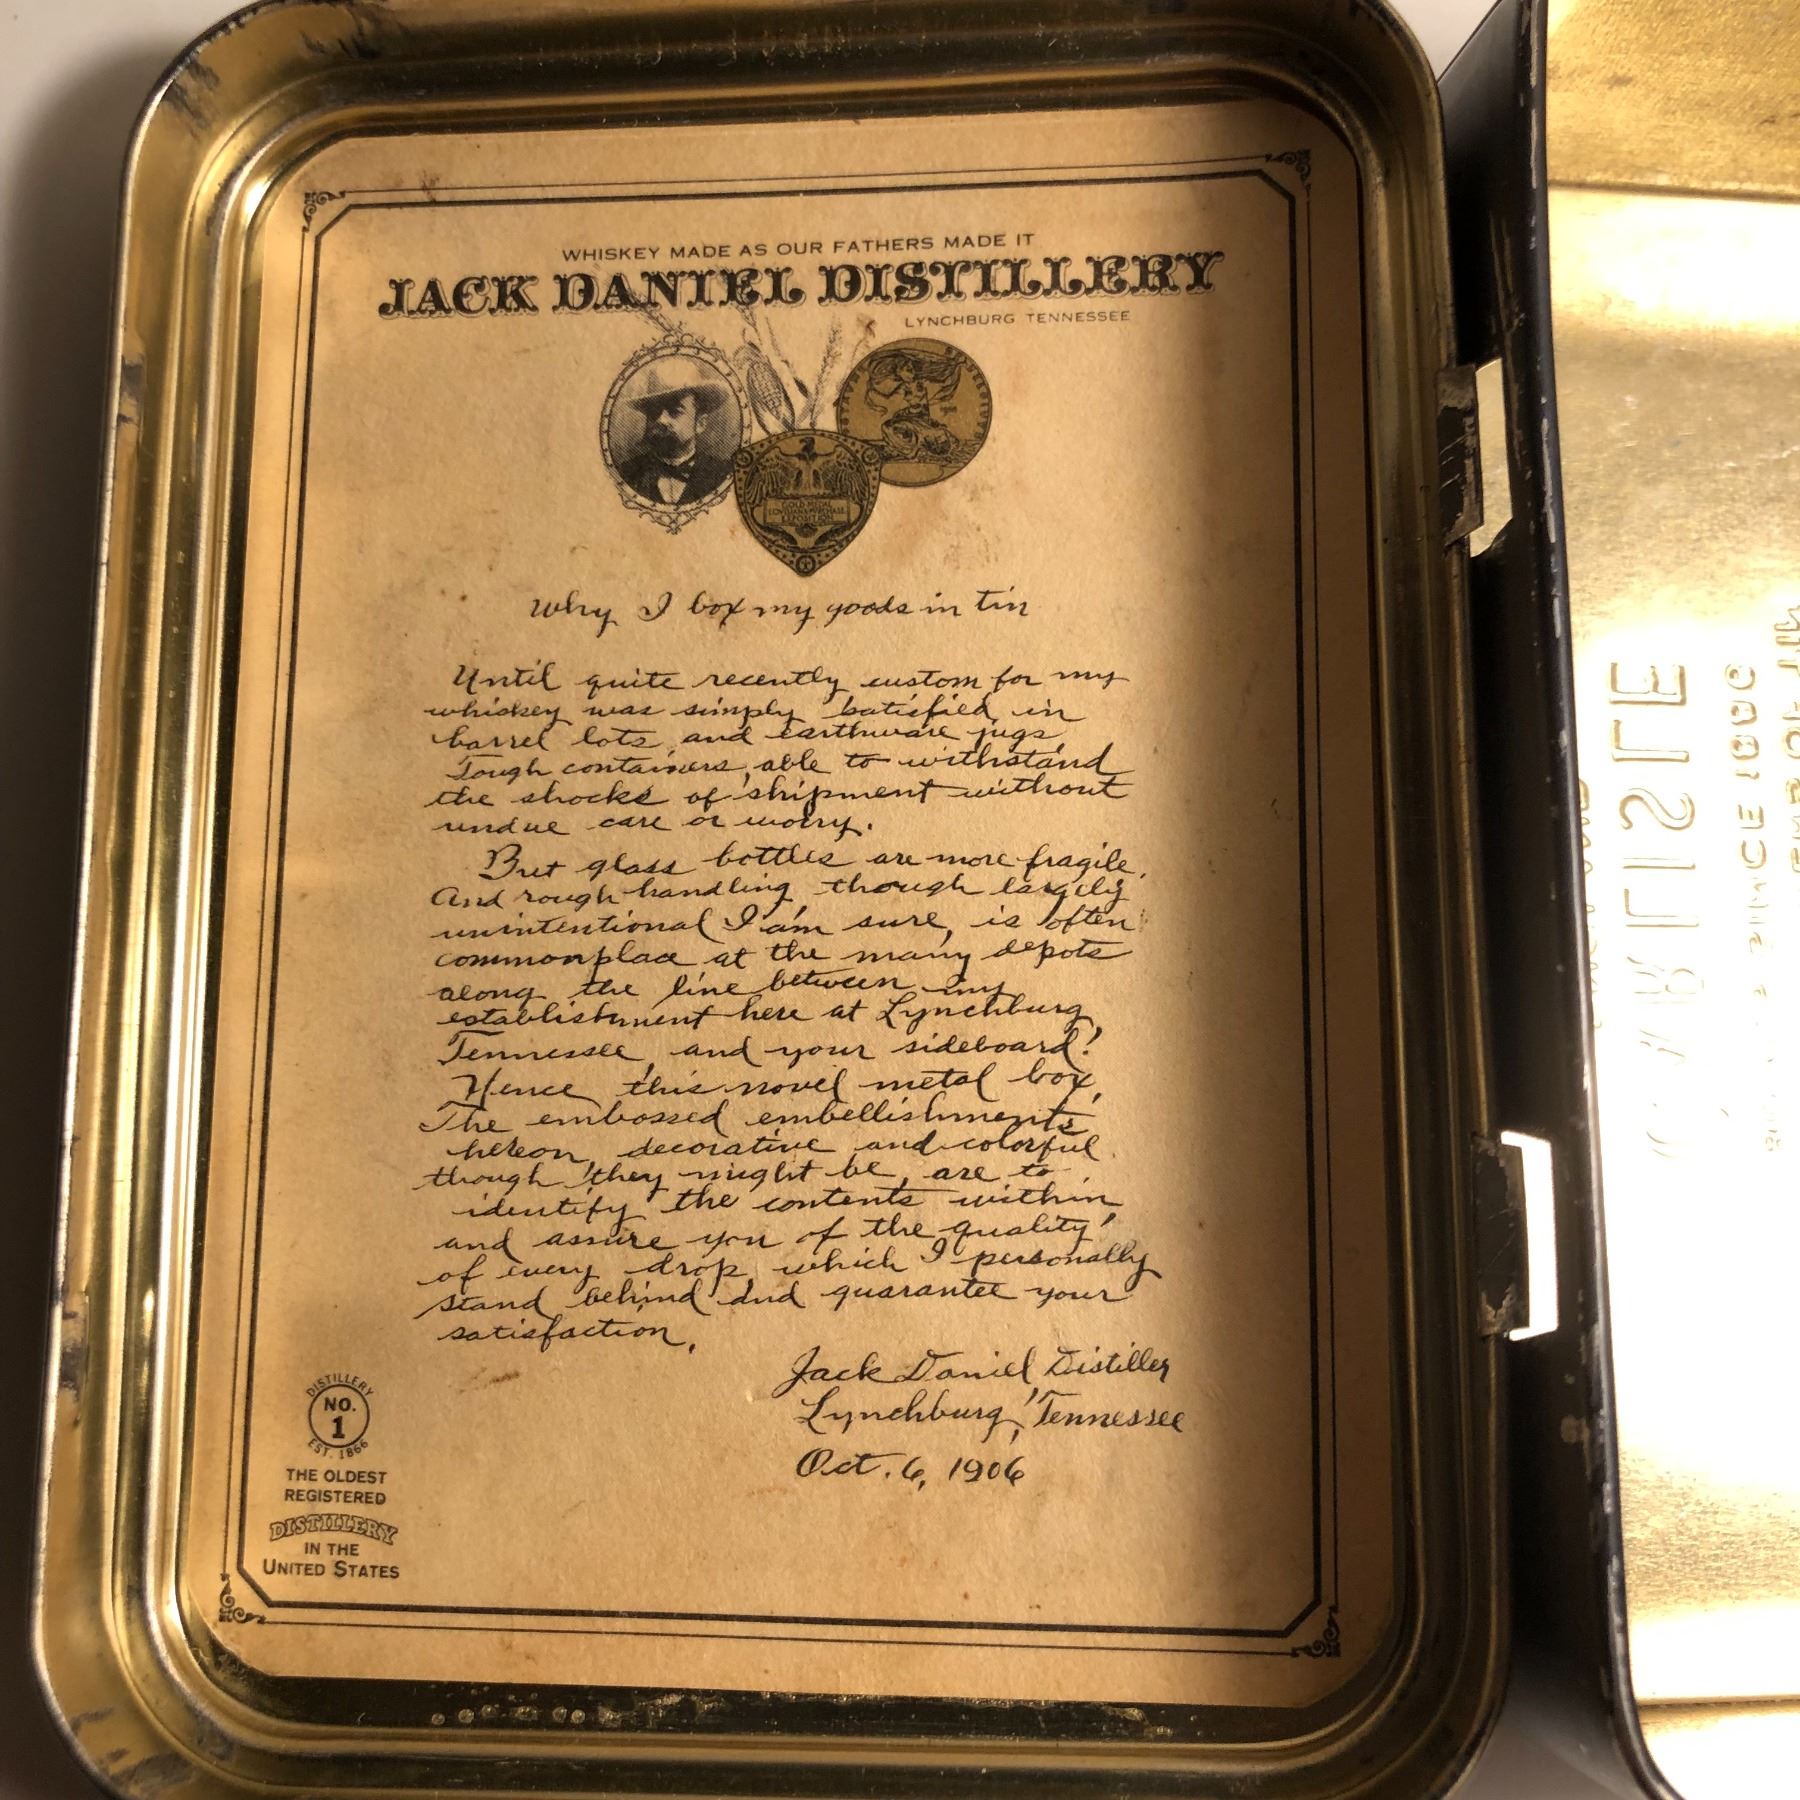 WHISKEY MADE AS OUR FATHERS MADE IT
JACK DANIEL DISTILLERY
LYNCHBURG TENNESSEE
GOLD MEDAL
LOUISIANA PURCHASE
EXPOSITION
Why I box my goods in tin
Until quite recently custom for my
whiskey was simply satisfied in
barrel lots and earthware jugs
Tough containers, able to withstand
the shocks of shipment without
undue care or worry.
But glass bottles are more fragile.
And rough handling, though largely
unintentional I am sure, is often
commonplace at the many depots
along the line between my
establishment here at Lynchburg
Tennessee, and your sideboard!
Hence this novel metal box,
The embossed embellishments
hereon, decorative and colorful
though they might be, are to
identify the contents within,
and assure you of the quality
of every drop, which I personally
stand behind and guarantee your
satisfaction.
Jack Daniel, Distiller
Lynchburg, Tennessee
Oct. 6, 1906
DISTILLERY
NO.
1
EST. 1866
THE OLDEST
REGISTERED
DISTILLERY
IN THE
UNITED STATES